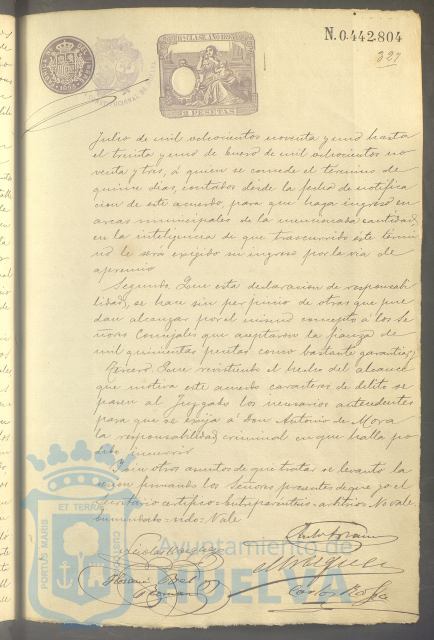 11ª CLASE AÑO 1893
N. 0.442.804
327
2 PESETAS
Julio de mil ochocientos noventa y uno hasta
el treinta y uno de Enero de mil ochocientos no
venta y tres, á quien se concede el término de
quince dias, contados desde la fecha de notifica
cion de este acuerdo, para que haga ingreso en
arcas municipales de la mencionada cantidad,
en la inteligencia de que trascurrido éste térmi
no le será exigido su ingreso por la via de
apremio
Segundo. Que esta declaracion de responsabi
lidad, se hace sin perjuicio de otras que pue
dan alcanzar por el mismo concepto á los Se
ñores Concejales que aceptaron la fianza de
mil quinientas pesetas como bastante garantia; y
Tercero. Que revistiendo el hecho del alcance
que motiva este acuerdo caracteres de delito se
pasen al Juzgado los necesarios antecedentes
para que se exija á Don Antonio de Mora
la responsabilidad criminal en que halla po
dido incurrir
Y sin otros asuntos de que tratar se levantó la
sesion firmando los Señores presentes de que yo el
Secretario certifico = Entreparentesis = No Vale
Vale
ET TERRAE
PORTUS MARIS
CUSTODIA
Ayuntamiento de
HUELVA